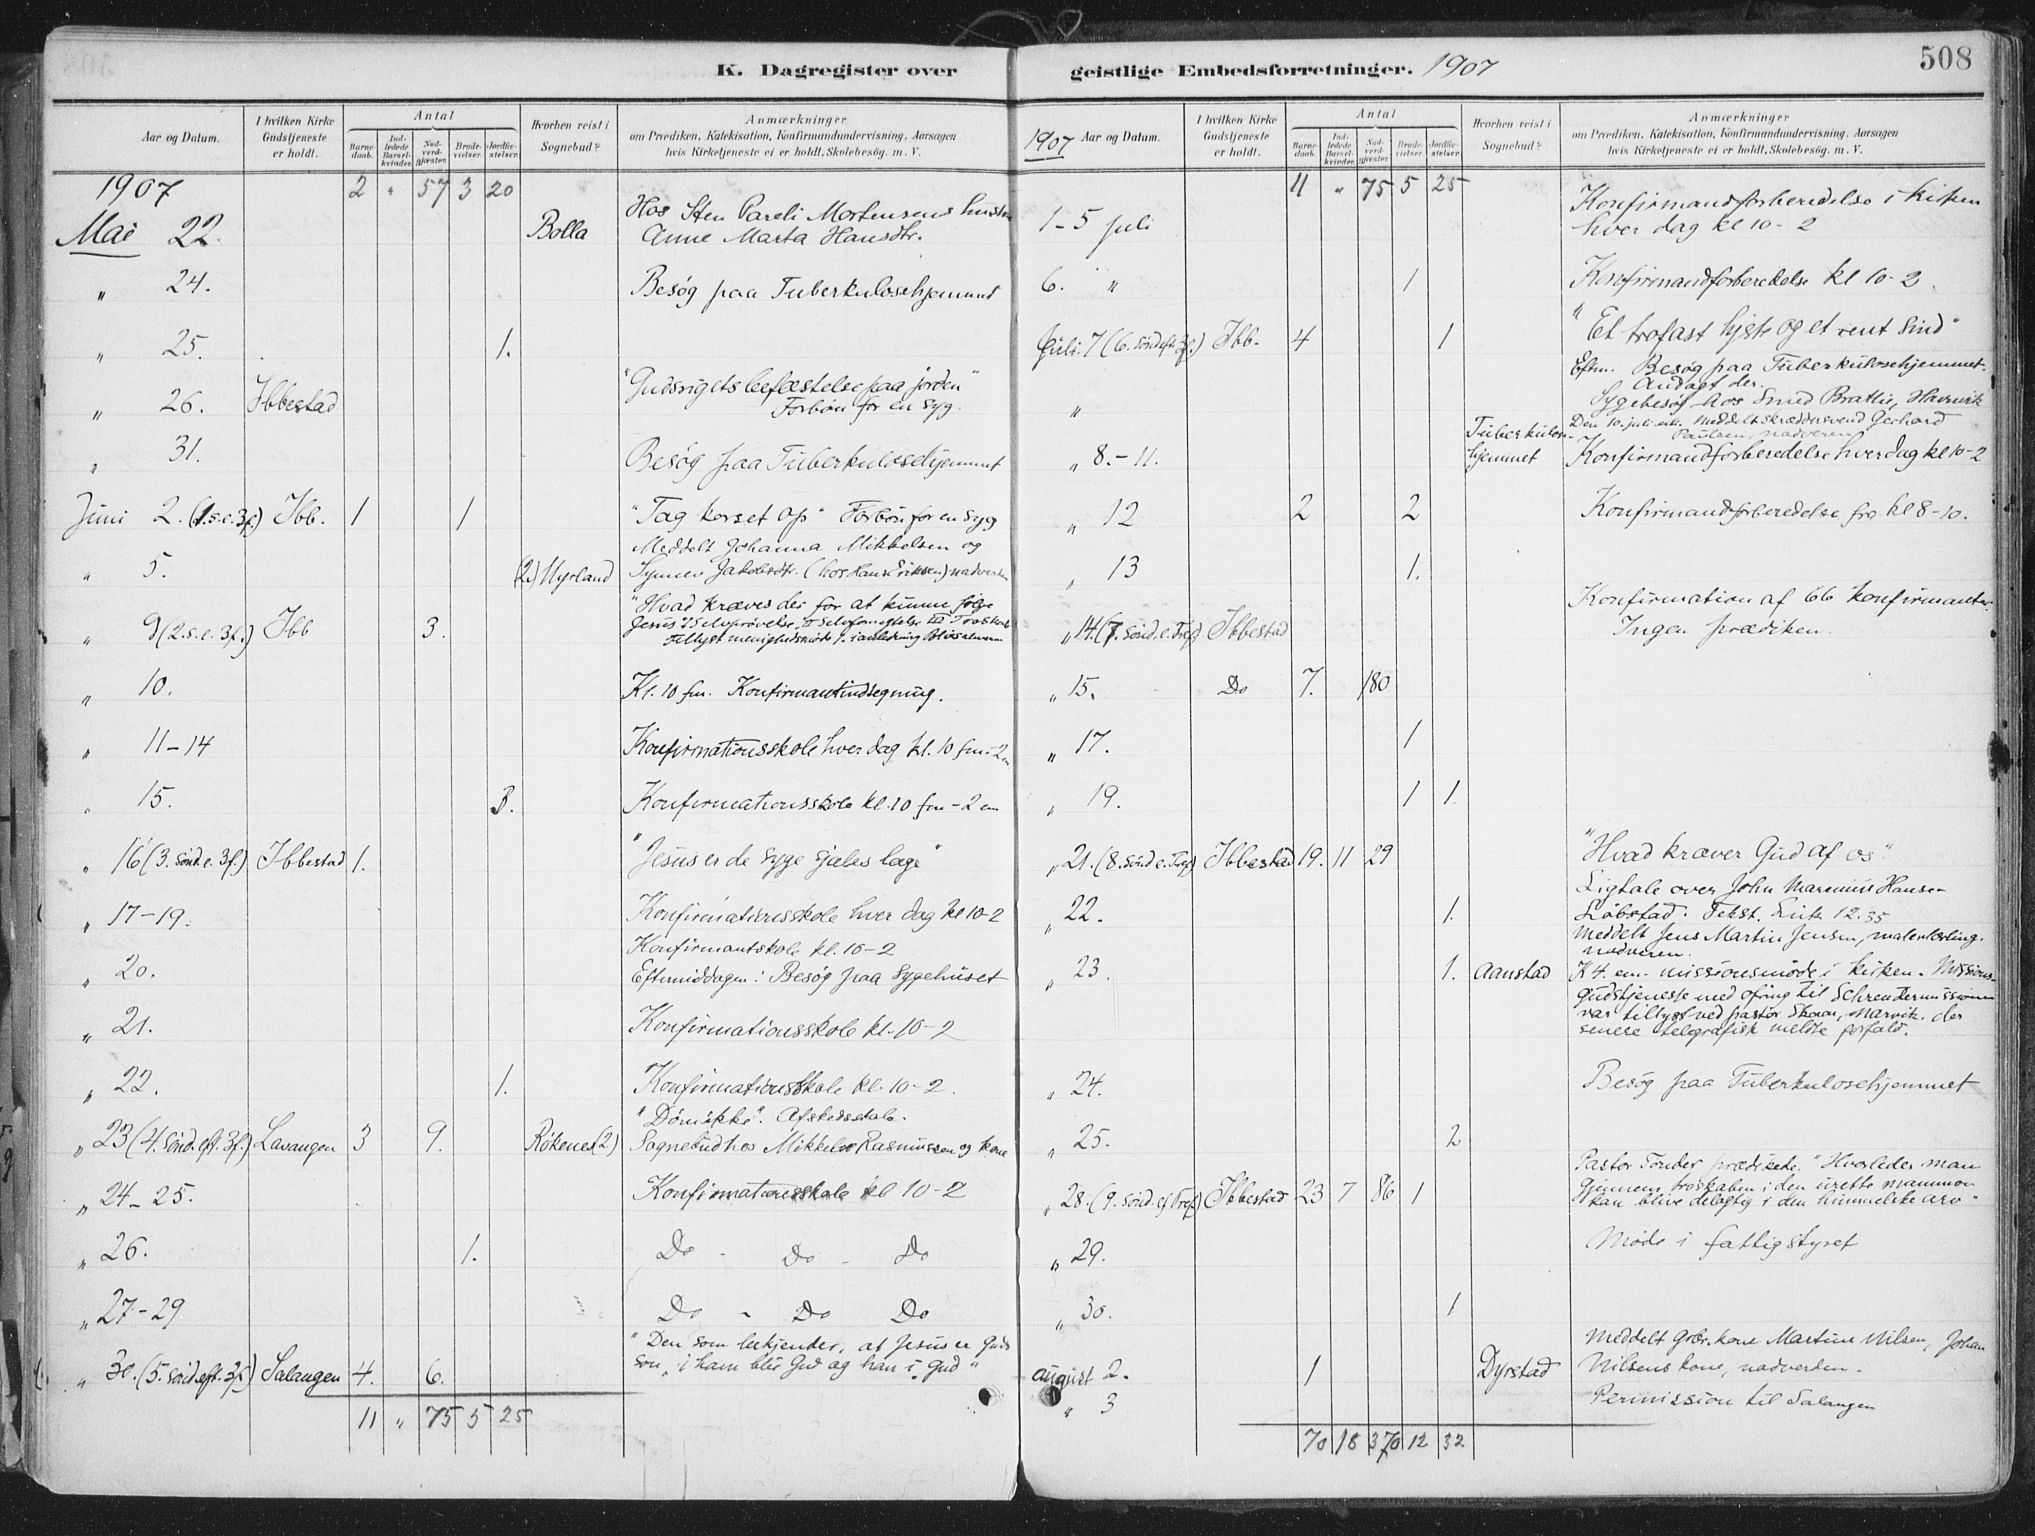 508
K. Dagregister over geistlige Embedsforretninger. 1907
Aar og Datum.
I hvilken Kirke Gudstjeneste er holdt.
Antal
Barnedaab.
Indledede Barselkvinder.
Nadverdgjæster.
Brudevielser.
Jordfæstelser.
Hvorhen reist i Sognebud?
Anmærkninger
om Prædiken, Katekisation, Konfirmandundervisning, Aarsagen
hvis Kirketjeneste ei er holdt, Skolebesög. m. V.
1907 2 " 57 3 20
Mai 22. Bolla Hos Sten Pareli Mortensens hustru
Anne Marta Hansdtr.
" 24. Besøg paa Tuberkulosehjemmet
" 25. 1.
" 26. Ibbestad "Gudsrigets befæstelse paa jorden"
Forbøn for en syg.
" 31. Besøg paa Tuberkulosehjemmet
Juni 2. (1. s. e. 3f.) Ibb. 1 1 "Tag korset op" Forbøn for en syg
" 5. (2) Myrland Meddelt Johanna Mikkelsen og
Jakobsdtr. (hos Hans Eriksen) nadverden
" 9 (2. s. e. 3f.) Ibb 3. "Hvad kræves der for at kunne følge
Jesus
" 10. Kl. 10 fm. Konfirmantindtegning.
" 11-14 Konfirmationsskole hver dag kl. 10 fm-2 em
" 15. 3. Konfirmationsskole kl. 10 fm-2 em
" 16 (3. sønd. e. 3f.) Ibbestad 1. "Jesus er de syge sjæles læge"
" 17-19. Konfirmationsskole hver dag kl 10-2
" 20. Konfirmantskole kl. 10-2
Eftermiddagen: Besøg paa sygehuset
" 21. Konfirmationsskole kl. 10-2
" 22. 1. Konfirmationsskole kl. 10-2.
" 23 (4. sønd. eft. 3f.) Lavangen 3 9. Røkenes (2) "Døm ikke". Afskedstale.
Sognebud hos Mikkel Rasmussen og kone
" 24-25. Konfirmationsskole kl 10-2
" 26. 1. Do - Do - Do
" 27-29 Do - Do Do
" 30. (5. sønd. eft. 3f) Salangen 4. 6. "Den som bekjender, at Jesus er Guds
søn, i ham blir Gud og han i Gud"
11 " 75 5 25
1907 Aar og Datum.
I hvilken Kirke Gudstjeneste er holdt.
Antal
Barnedaab.
Indledede Barselkvinder.
Nadverdgjæster.
Brudevielser.
Jordfæstelser.
Hvorhen reist i Sognebud?
Anmærkninger
om Prædiken, Katekisation, Konfirmandundervisning, Aarsagen
hvis Kirketjeneste ei er holdt, Skolebesög. m. V.
11 " 75 5 25
1-5 juli Konfirmandforberedelse i kirken
hver dag kl 10-2
6. " 1 Konfirmandforberedelse kl 10-2.
Juli 7 (6. sønd. eft. 3f.) Ibb. 4 1 "Et trofast hjerte og et rent sind"
" Eftm. Besøg paa Tuberkulosehjemmet.
Andagt der.
Sygebesøg hos Smed Bratli, Havnvik
Den 10. juli meddelt skræddersvend Gerhard
Paulsen nadveren
" 8.-11. Tuberkulosehjemmet Konfirmandforberedelse hver dag kl 10-2
" 12 2 2 Konfirmandforberedelse fra kl 8-10.
" 13 1.
" 14. (7. sønd. e. Tref) Ibbestad Konfirmation af 66 konfirmanter
Ingen prædiken.
" 15. Do 7. 180
" 17. 1
" 19. 1 1.
" 21. (8. sønd e. Tref) Ibbestad 19. 11 29 "Hvad kræver Gud af os".
" 22. 1. Ligtale over John Marenius Hansen
Løbstad. Tekst. Luk 12.35
" 23. 1. Aanstad Meddelt Jens Martin Jensen, malerlærling.
nadveren.
Kl 4. em. missionsmøde i kirken. Missions-
gudstjeneste med ofring til Schreudermissionen
var tillyst ved pastor Skaar, Narvik, der
senere telegrafisk meldte forfald.
" 24. Besøg paa Tuberkulosehjemmet
" 25. 2
" 28. (9. sønd. ef Tref.) Ibbestad 23 7 86 1 Pastor Tønder prædikede. "Hvorledes man
gjennem troskaben i den urette mammon
kan blive delagtig i den himmelske arv"
" 29. Møde i fattigstyret
" 30. 1
august 2. 1 Dyrstad Meddelt gbr. kone Martine Nilsen, Johan
Nilsens kone, nadverden.
" 3 Permission til Salangen
70 18 370 12 32